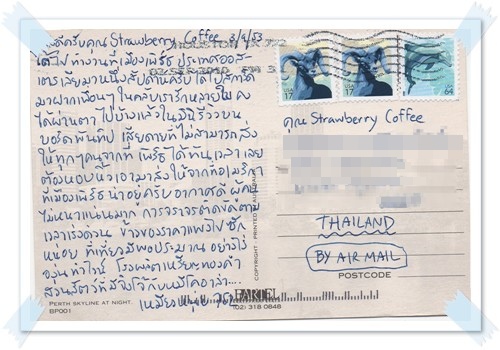 สวัสดีครับคุณ Strawberry Coffee 3/9/53
ได้ไปทำงานที่เมืองเพิร์ธ ประเทศออส-
เตรเลียมาหนึ่งสัปดาห์ครับ ได้โปสการ์ด
มาฝากเพื่อนๆ ในคลับเราร้กหลายใบ คง
ได้ผ่านตา ไปบ้างแล้วในมินิรีวิวบน
บอร์ดพันทิป เสียดายที่ไม่สามารถส่ง
ให้ทุกๆคนจากที่เพิร์ธได้ทันเวลา เลย
ต้องหอบหิ้วเอามาส่งให้จากที่อเมริกา
ที่เมืองเพิร์ธ น่าอยู่ครับ อากาศดี ผู้คน
ไม่หนาแน่นมาก การจราจรติดขัดตาม
เวลาเร่งด่วน ข้าวของราคาแพงไป ซัก
หน่อย ที่เที่ยวมีพอประมาณ อย่างไร่
องุ่นทำไวน์ โรงผลิตเหรียญทองคำ
ส่วนสัตว์ที่มีจิงโจ้กับหมีโคอาล่า....
PERTH SKYLINE AT NIGHT.
BP001
COPYRIGHT PRINTED
(02) 318 0848
USA
17
USA
17
64
คุณ Strawberry Coffee
THAILAND
BY AIR MAIL
POSTCODE